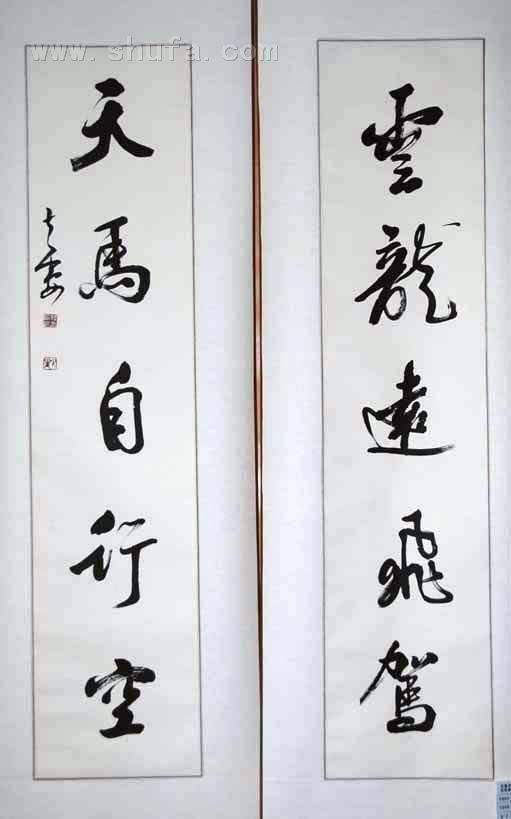 www.shufa.com
雲龍遠飛駕
天馬自行空